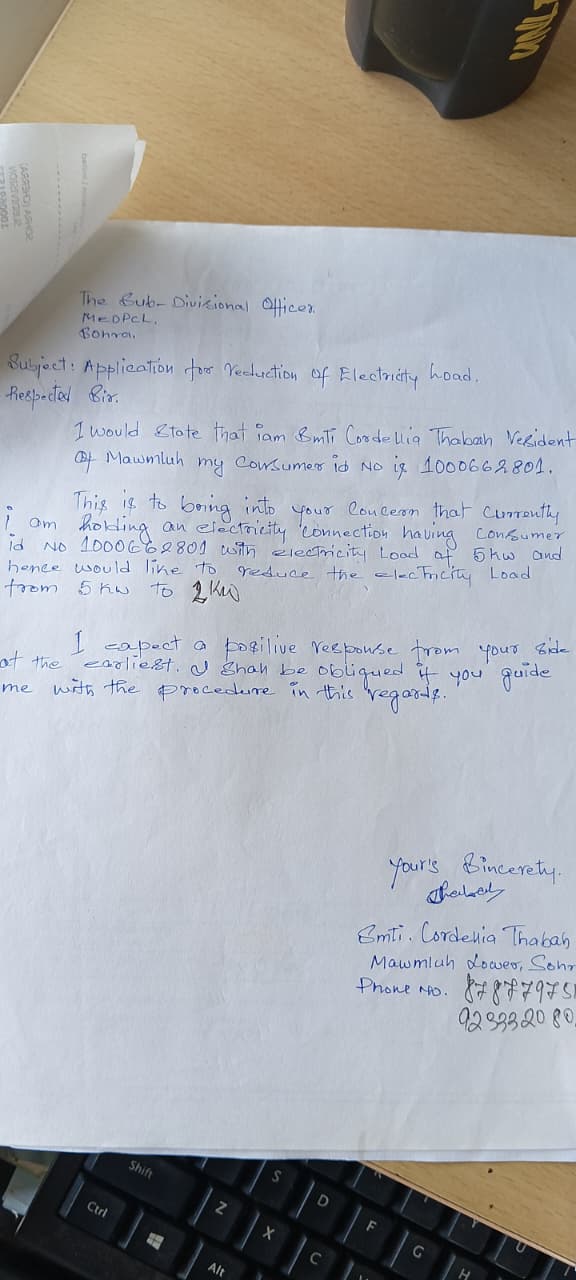 UNLE
The Sub-Divisional Officer.
MEDPCL.
Sohra.
Subject: Application for reduction of Electricity Load.
Respected Sir.
I would State that iam Smti Cordellia Thabah Resident
Of Mawmluh my Consumer id No is 1000662801.
This is to bring into your Concern that Currently
i am holding an electricity connection having Consumer
id No 1000662801 with electricity Load of 5kw and
hence would like to reduce the electricity Load
from 5 Kw to 2 Kw
I expect a positive response from your Side
at the earliest. I Shall be obliqued if you guide
me with the procedure in this regards.
Your's Sincerety.
Smti. Cordellia Thabah
Mawmluh Lower, Sohr
Phone No.
Shift
Ctrl
Alt
Z
X
C
S
D
F
G
H